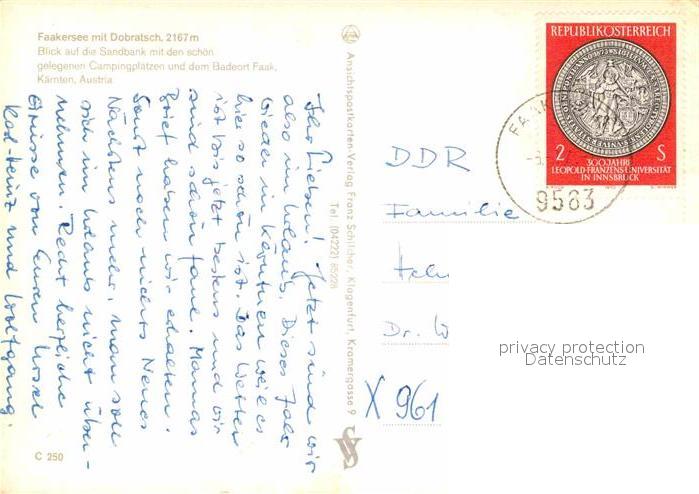 Faakersee mit Dobratsch, 2167m
Blick auf die Sandbank mit den schön
gelegenen Campingplätzen und dem Badeort Faak,
Kärnten, Austria
Ihr Lieben! Jetzt sind wir
also im Urlaub. Dieses Jahr
wieder in Kärnten weil es
hier so schön ist. Das Wetter
ist bis jetzt bestens und wir
sind schön faul. Mamas
Brief haben wir erhalten.
Sonst noch nichts Neues
Nächstens mehr, man soll
sich im Urlaub nicht über-
nehmen. Recht herzliche
Grüsse von Euren
Karl-Heinz und Wolfgang.
C 250
Ansichtspostkarten-Verlag Franz Schilcher, Klagenfurt, Kramergasse 9
Tel. (04222) 85228
REPUBLIK ÖSTERREICH
2 S
300 JAHRE
LEOPOLD-FRANZENS-UNIVERSITÄT
IN INNSBRUCK
FAAK
9583
DDR
Familie
Dr. W
X 961
privacy protection
Datenschutz